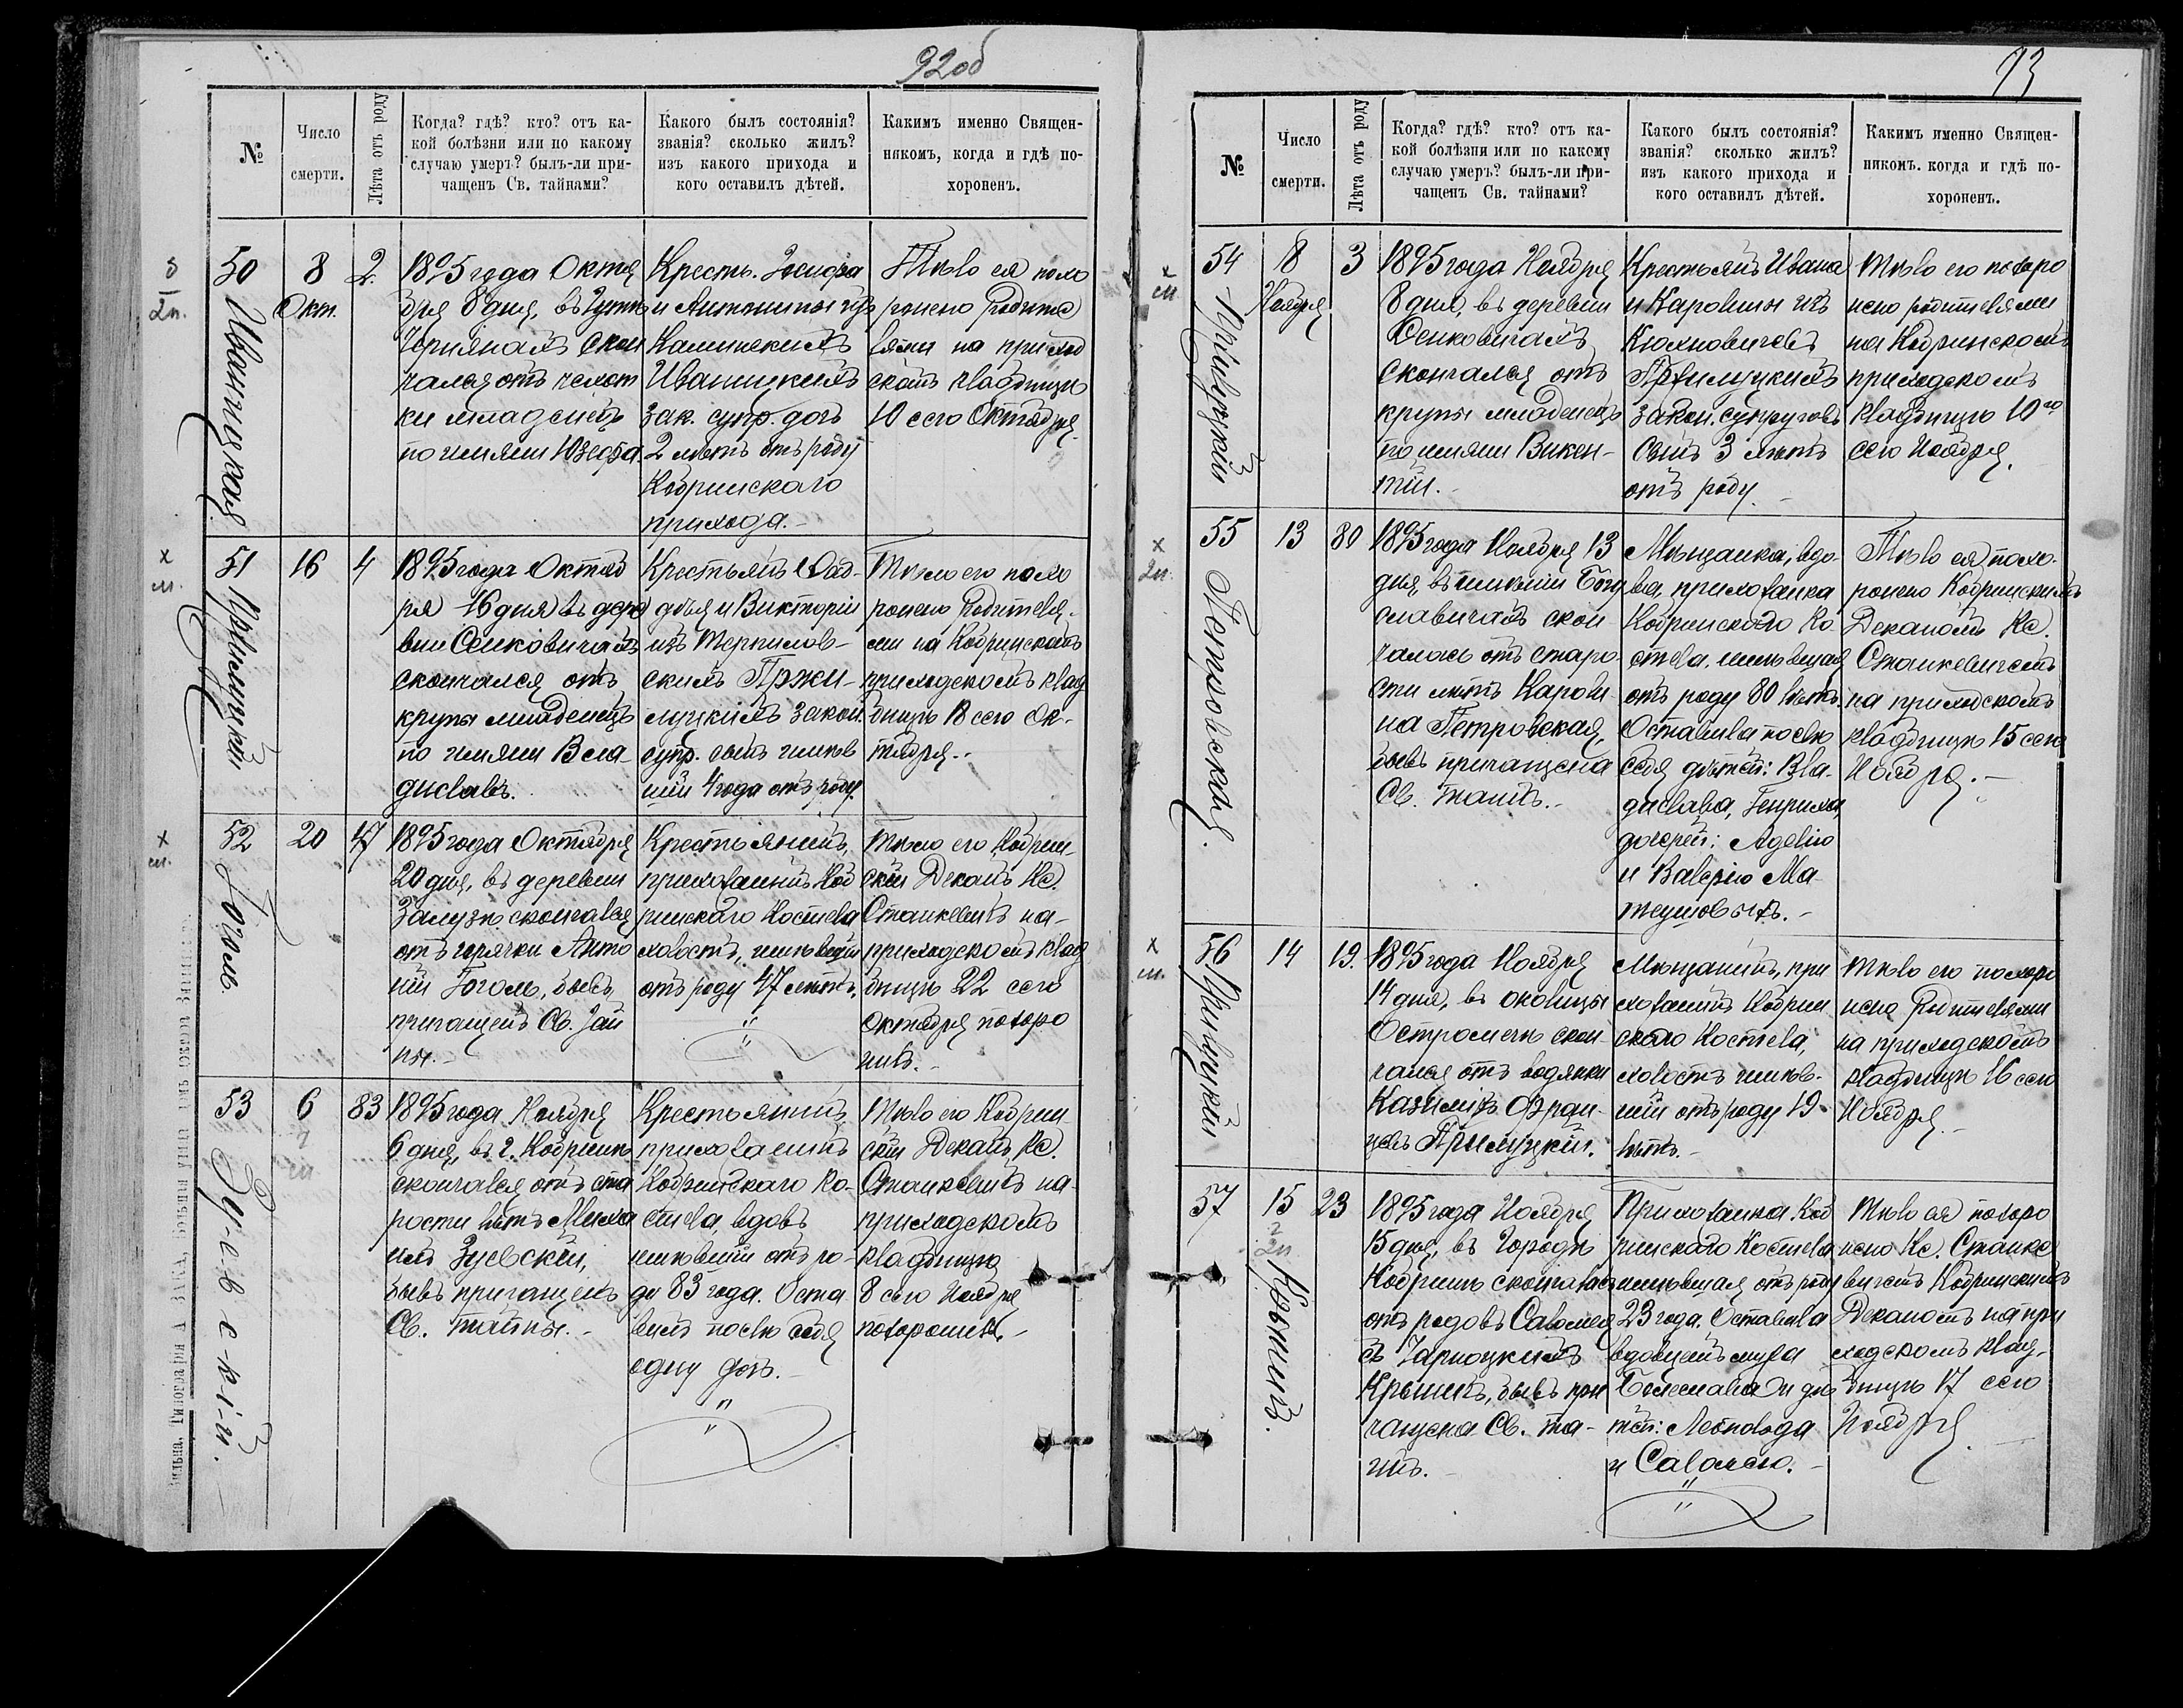 92об
№
Число
смерти.
Лѣта отъ роду
Когда? гдѣ? кто? отъ ка-
кой болѣзни или по какому
случаю умеръ? былъ-ли при-
чащенъ Св. тайнами?
Какого былъ состоянія?
званія? сколько жилъ?
изъ какого прихода и
кого оставилъ дѣтей.
Какимъ именно Священ-
никомъ, когда и гдѣ по-
хороненъ.
50
Иваницкая
8
Окт.
2.
1895 года Октя
бря 8 дня, въ
скон
чался отъ чахот
ки младенецъ
по имени Юзефа.
Кресть.
и Антонины изъ
Калинскихъ
Иваницкихъ
зак. супр. дочь
2 лѣтъ отъ роду
Кобринскаго
прихода.-
Тѣло ея похо
ронено родите
лями на приход
скомъ кладбищѣ
10 сего Октября.
51
Прилуцкій
16
4
1895 года Октяб
ря 16 дня въ дере
вни Сенковичахъ
скончался отъ
крупы младенецъ
по имени Вла-
диславъ.
Крестьянъ Фад-
дея и Викторіи
изъ
скихъ Пржи-
луцкихъ закон.
супр. сынъ имѣв
шій 4 года отъ роду.
Тѣло его похо
ронено родителя-
ми на Кобринскомъ
приходскомъ клад
бищѣ 18 сего Ок-
тября.-
52
Гоголь
20
47
1895 года Октября
20 дня, въ деревни
Залузѣ скончался
отъ горячки Анто
ній Гоголь, бывъ
причащенъ Св. Тай
ны.-
Крестьянинъ,
прихожанинъ Коб
ринскаго Костела
холостъ, имѣвшій
отъ роду 47 лѣтъ.
Тѣло его Кобрин-
скій Деканъ Кс.
Станкевичъ на
приходскомъ клад
бищѣ 22 сего
Октября похоро
нилъ.-
53
Зуевскій.
6
83
1895 года Ноября
6 дня, въ г. Кобринѣ
скончался отъ ста
рости лѣтъ Миха
илъ Зуевскій,
бывъ причащенъ
Св. тайны.-
Крестьянинъ
прихожанинъ
Кобринскаго Ко-
стела, вдовъ
имѣвшій отъ ро-
ду 83 года. Оста
вилъ послѣ себя
одну дочь.-
Тѣло его Кобрин-
скій Деканъ Кс.
Станкевичъ на
приходскомъ
кладбищѣ
8 сего Ноября
похоронилъ.-
Вильна, Типографія
93
№
Число
смерти.
Лѣта отъ роду
Когда? гдѣ? кто? отъ ка-
кой болѣзни или по какому
случаю умеръ? былъ-ли при-
чащенъ Св. тайнами?
Какого былъ состоянія?
званія? сколько жилъ?
изъ какого прихода и
кого оставилъ дѣтей.
Какимъ именно Священ-
никомъ, когда и гдѣ по-
хороненъ.
54
Прилуцкій
8
Ноября
3
1895 года Ноября
8 дня, въ деревни
Сенковичахъ
скончался отъ
крупы младенецъ
по имени Викен-
тій.-
Крестьянъ Ивана
и Каролины изъ
Кюхновичевъ
Прилуцкихъ
закон. супруговъ
сынъ 3 лѣтъ
отъ роду.-
Тѣло его похоро
нено родителями
на Кобринскомъ
приходскомъ
кладбищѣ 10го
сего Ноября.
55
Петровская.
13
80
1895 года Ноября 13
дня, въ имѣніи Богу
славичахъ скон
чалась отъ старо
сти лѣтъ Кароли
на Петровская,
бывъ причащена
Св. таинъ.-
Мѣщанка, вдо-
ва, прихожанка
Кобринскаго Ко
стела, имѣвшая
отъ роду 80 лѣтъ.
Оставила послѣ
себя дѣтей: Вла-
дислава, Генриха,
дочерей: Аделію
и Валерію Ма
теушовыхъ.-
Тѣло ея похо-
ронено Кобринскимъ
Деканомъ Кс.
Станкевичемъ
на приходскомъ
кладбищѣ 15 сего
Ноября.-
56
Прилуцкій
14
19.
1895 года Ноября
14 дня, въ околицы
Остромечъ скон-
чался отъ водянки
Казиміръ Фран-
цевъ Прилуцкій.
Мѣщанинъ, при
хожанинъ Кобрин
скаго Костела,
холостъ имѣв-
шій отъ роду 19
лѣтъ.-
Тѣло его похоро
нено Родителями
на приходскомъ
кладбищѣ 16 сего
Ноября.-
57
15
23
1895 года Ноября
15 дня, въ Городѣ
Кобринѣ скончалась
отъ родовъ Саломея
съ Чарноцкихъ
бывъ при
чащена Св. та-
инъ.
Прихожанка Коб
ринскаго Костела
имѣвшая отъ роду
23 года. Оставила
вдовцемъ мужа
Болеслава и дѣ
тей: Леопольда
и Саломею.-
Тѣло ея похоро
нено Кс. Станке
вичемъ Кобринскимъ
Деканомъ на при
ходскомъ клад-
бищѣ 17 сего
Ноября.